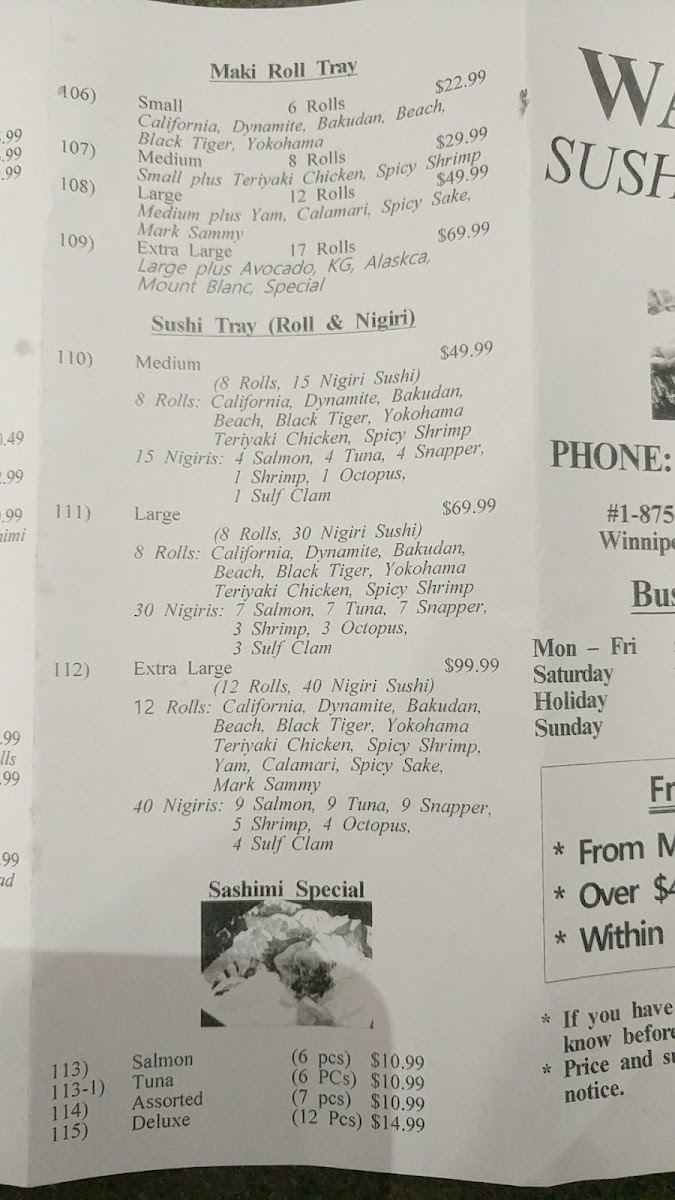 .99
.99
.99
0.49
2.99
.99
himi
.99
lls
.99
.99
ad
Maki Roll Tray
106) Small 6 Rolls $22.99
California, Dynamite, Bakudan, Beach,
Black Tiger, Yokohama
107) Medium 8 Rolls $29.99
Small plus Teriyaki Chicken, Spicy Shrimp
108) Large 12 Rolls $49.99
Medium plus Yam, Calamari, Spicy Sake,
Mark Sammy
109) Extra Large 17 Rolls $69.99
Large plus Avocado, KG, Alaskca,
Mount Blanc, Special
Sushi Tray (Roll & Nigiri)
110) Medium $49.99
(8 Rolls, 15 Nigiri Sushi)
8 Rolls: California, Dynamite, Bakudan,
Beach, Black Tiger, Yokohama
Teriyaki Chicken, Spicy Shrimp
15 Nigiris: 4 Salmon, 4 Tuna, 4 Snapper,
1 Shrimp, 1 Octopus,
1 Sulf Clam
111) Large $69.99
(8 Rolls, 30 Nigiri Sushi)
8 Rolls: California, Dynamite, Bakudan,
Beach, Black Tiger, Yokohama
Teriyaki Chicken, Spicy Shrimp
30 Nigiris: 7 Salmon, 7 Tuna, 7 Snapper,
3 Shrimp, 3 Octopus,
3 Sulf Clam
112) Extra Large $99.99
(12 Rolls, 40 Nigiri Sushi)
12 Rolls: California, Dynamite, Bakudan,
Beach, Black Tiger, Yokohama
Teriyaki Chicken, Spicy Shrimp,
Yam, Calamari, Spicy Sake,
Mark Sammy
40 Nigiris: 9 Salmon, 9 Tuna, 9 Snapper,
5 Shrimp, 4 Octopus,
4 Sulf Clam
Sashimi Special
113) Salmon (6 pcs) $10.99
113-1) Tuna (6 PCs) $10.99
114) Assorted (7 pcs) $10.99
115) Deluxe (12 Pcs) $14.99
WA
SUSH
PHONE:
#1-875
Winnipe
Bus
Mon – Fri
Saturday
Holiday
Sunday
Fr
* From M
* Over $4
* Within
* If you have
know before
* Price and su
notice.